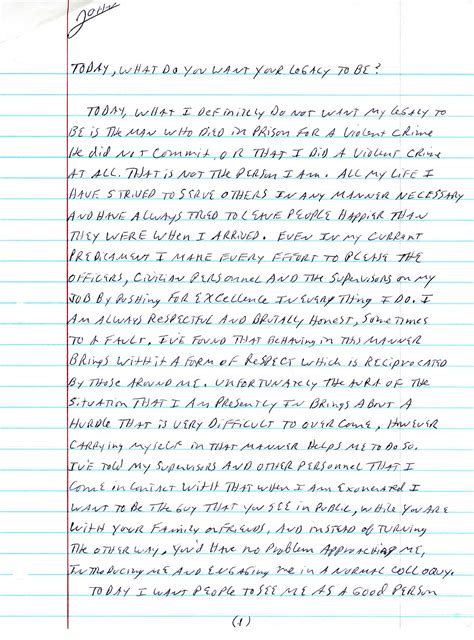 JOHN
TODAY, WHAT DO YOU WANT YOUR LEGACY TO BE?
TODAY, WHAT I DEFINITLY DO NOT WANT MY LEGACY TO
BE IS THE MAN WHO DIED IN PRISON FOR A VIOLENT CRIME
HE DID NOT COMMIT, OR THAT I DID A VIOLENT CRIME
AT ALL. THAT IS NOT THE PERSON I AM. ALL MY LIFE I
HAVE STRIVED TO SERVE OTHERS IN ANY MANNER NECESSARY
AND HAVE ALWAYS TRIED TO LEAVE PEOPLE HAPPIER THAN
THEY WERE WHEN I ARRIVED. EVEN IN MY CURRANT
PREDICAMENT I MAKE EVERY EFFORT TO PLEASE THE
OFFICERS, CIVILIAN PERSONNEL AND THE SUPERVISORS ON MY
JOB BY PUSHING FOR EXCELLENCE IN EVERY THING I DO. I
AM ALWAYS RESPECTFUL AND BRUTALLY HONEST, SOMETIMES
TO A FAULT. I'VE FOUND THAT BEHAVING IN THIS MANNER
BRINGS WITH IT A FORM OF RESPECT WHICH IS RECIPROCATED
BY THOSE AROUND ME. UNFORTUNATELY THE AURA OF THE
SITUATION THAT I AM PRESENTLY IN BRINGS ABOUT A
HURDLE THAT IS VERY DIFFICULT TO OVER COME, HOWEVER
CARRYING MYSELF IN THAT MANNER HELPS ME TO DO SO.
I'VE TOLD MY SUPERVISORS AND OTHER PERSONNEL THAT I
COME IN CONTACT WITH THAT WHEN I AM EXONERATED I
WANT TO BE THE GUY THAT YOU SEE IN PUBLIC, WHILE YOU ARE
WITH YOUR FAMILY OR FRIENDS, AND INSTEAD OF TURNING
THE OTHER WAY, YOU'D HAVE NO PROBLEM APPROACHING ME,
INTRODUCING ME AND ENGAGING ME IN A NORMAL COLLOQUY.
TODAY I WANT PEOPLE TO SEE ME AS A GOOD PERSON
(1)